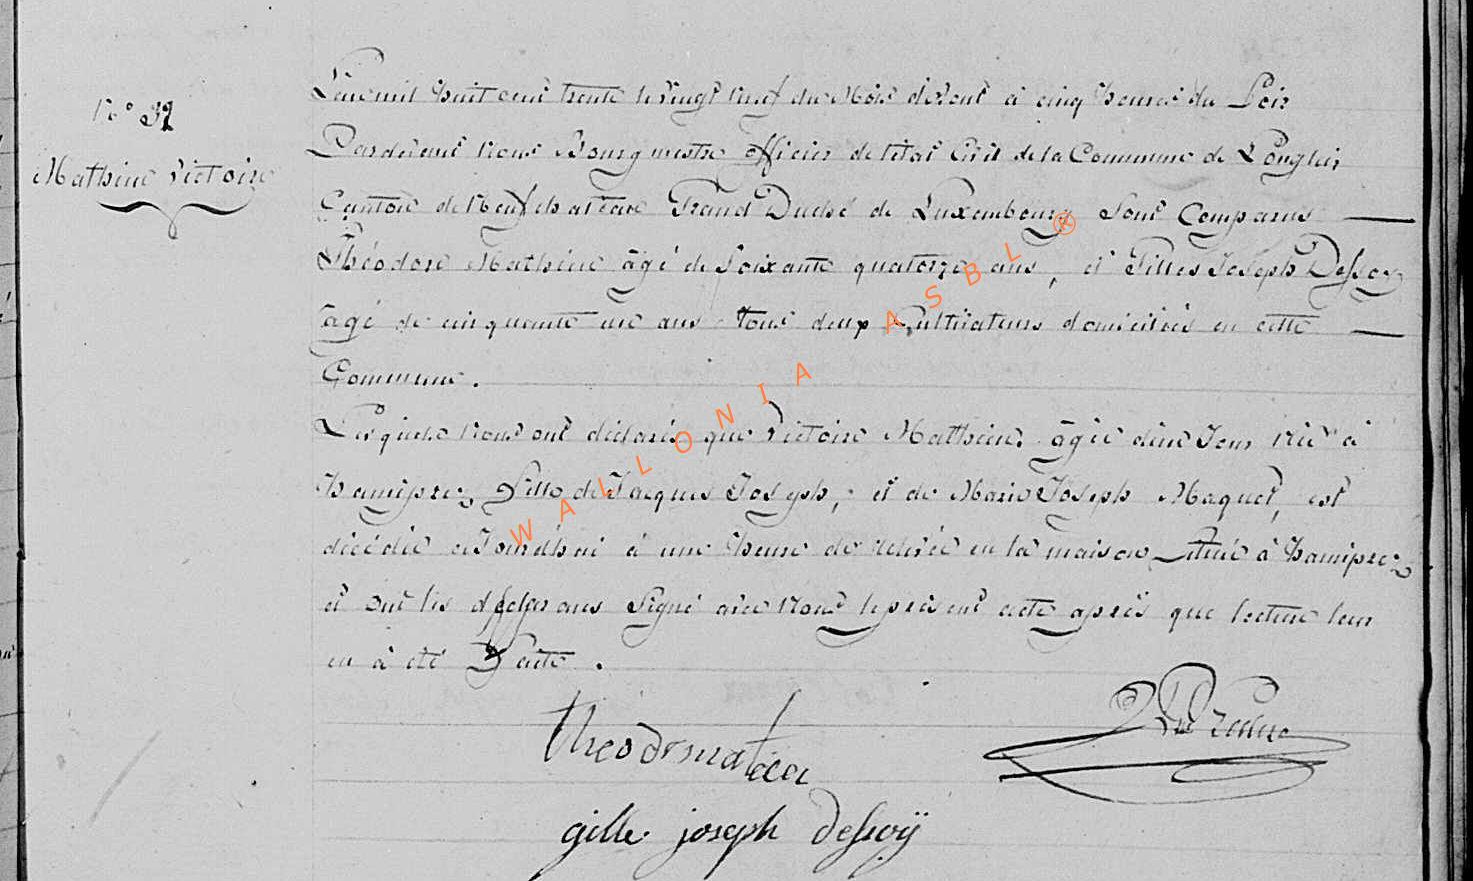 N° 32
Mathieu Victoire
L'an mil huit cent trente le vingt neuf du Mois d'Avout à cinq heures du Soir
Pardevant Nous Bourgmestre officier de letat Civil de la Commune de Longlier
Canton de Neufchateau Grand Duché de Luxembourg Sont Comparus
Théodore Mathieu âgé de Soixante quatorze ans, et Gilles Joseph Dessoy
âgé de cinquante un ans tous deux Cultivateurs domiciliés en cette
Commune.
Lesquels Nous ont déclarés que Victoire Mathieu, âgée d'un Jour Née à
hamiprez, Fille de Jacques Joseph, et de Marie Joseph Maquet, est
décédée aJourd'hui à une heure de relevée en la maison située à hamiprez
et ont les déclarans Signé avec Nous le présent acte après que lecture leur
en à été Faite.
theodor matieu
gille joseph dessoÿ
WALLONIA ASBL ®